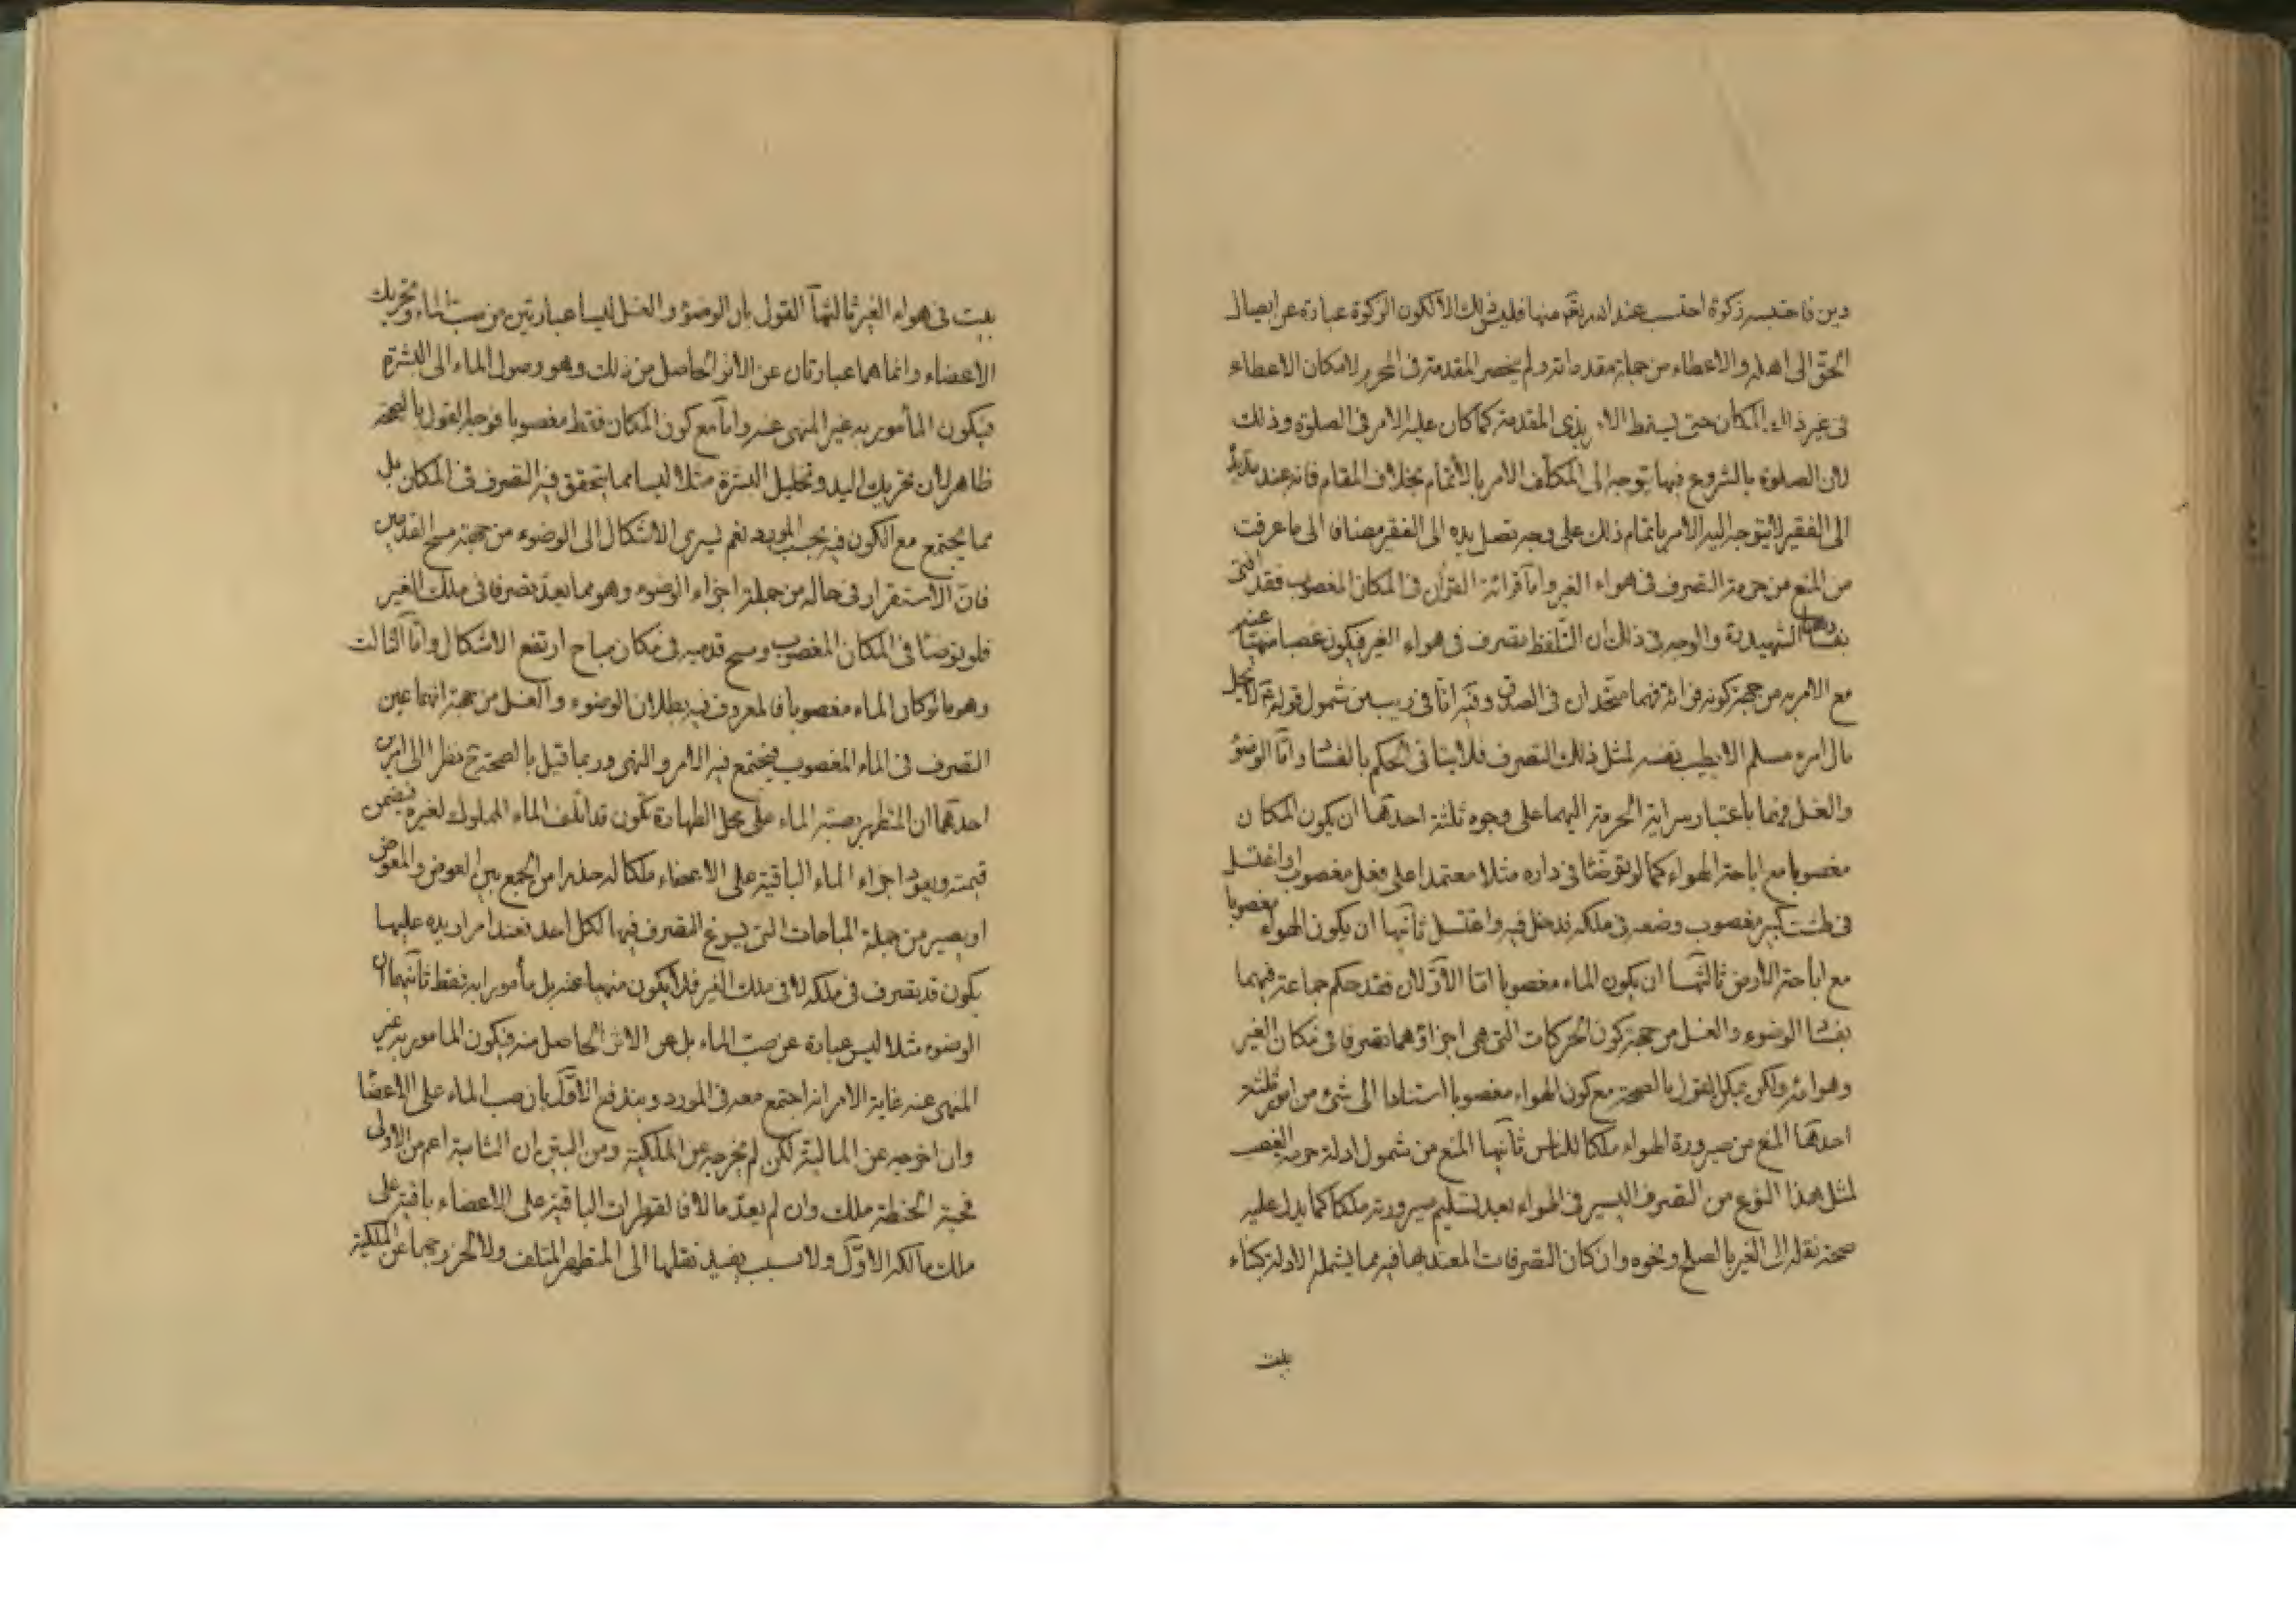 دين فاحتسبه زكوة احتسب عند الله بقم منها فليس ذلك الا لكون الزكوة عبارة عن ايصال
الحق الى اهله والاعطاء من جملة مقدماته ولم ينحصر المقدمة فى المحرم لامكان الاعطاء
فى غير ذلك المكان حتى يسقط الامر بذى المقدمة كما كان عليه الامر فى الصلوة وذلك
لان الصلوة بالشروع فيها يتوجه الى المكلف الامر بالأتمام بخلاف المقام فانه عند مد يده
الى الفقير لا يتوجه اليه الامر باتمام ذلك على وجه تصل يده الى الفقير مضافا الى ما عرفت
من المنع من حرمة التصرف فى هواء الغير وامّا قرائة القرآن فى المكان المغصوب فقد افتى
بفسادها الشهيد ره والوجه فى ذلك ان التلفظ تصرف فى هواء الغير فيكون غصبا منهيّا عنه
مع الامر به من جهة كونه قرائة فهما متحدان فى الصدق وفيه انا فى ريب من شمول قوله ع لا يحل
مال امرء مسلم الا بطيب نفسه لمثل ذلك التصرف فلا يتأتى الحكم بالفساد وامّا الوضوء
والغسل فهما باعتبار سراية الحرمة اليهما على وجوه ثلثة احدهما ان يكون المكان
مغصوبا مع اباحة الهواء كما لو توضّئا فى داره مثلا معتمدا على فعل مغصوب او اغتسل
فى طشت كبير مغصوب وضعه فى ملكه فدخل فيه واغتسل ثانيها ان يكون الهواء مغصوبا
مع اباحة الارض ثالثها ان يكون الماء مغصوبا امّا الأوّلان فقد حكم جماعة فيهما
بفساد الوضوء والغسل من جهة كون الحركات التى هى اجزاؤهما تصرفا فى مكان الغير
وهوائه ولكن يمكن القول بالصحة مع كون الهواء مغصوبا استنادا الى شئ من امور ثلثة
احدهما المنع من صيرورة الهواء ملكا للناس ثانيها المنع من شمول ادلة حرمة الغصب
لمثل هذا النوع من التصرف اليسير فى الهواء بعد تسليم صيرورته ملكا كما يدل عليه
صحة نقله الى الغير بالصلح ونحوه وان كان التصرفات المعتد بها فيه مما يشمله الادلة كبناء
بيت
بيت فى هواء الغير ثالثها القول بان الوضوء والغسل ليسا عبارتين من صب الماء وتحريك
الاعضاء وانما هما عبارتان عن الاثر الحاصل من ذلك وهو وصول الماء الى البشرة
فيكون المأمور به غير المنهى عنه وامّا مع كون المكان فقط مغصوبا فوجه القول بالصحة
ظاهر لان تحريك اليد وتخليل البشرة مثلا ليسا مما يتحقق فيه التصرف فى المكان بل
مما يجتمع مع الكون فيه بحسب المورد نعم يسرى الاشكال الى الوضوء من جهة مسح القدمين
فانّ الاستقرار فى حاله من جملة اجزاء الوضوء وهو مما يعدّ تصرفا فى ملك الغير
فلو توضئا فى المكان المغصوب ومسح قدميه فى مكان مباح ارتفع الاشكال وامّا الثالث
وهو ما لو كان الماء مغصوبا فالمعروف فيه بطلان الوضوء والغسل من جهة انهما عين
التصرف فى الماء المغصوب فيجتمع فيه الامر والنهى وربما قيل بالصحة ح نظرا الى امرين
احدهما ان المتطهر بصبّه الماء على محل الطهارة يكون قد اتلف الماء المملوك لغيره فيضمن
قيمته ويعود اجزاء الماء الباقية على الاعضاء ملكا له حذرا من الجمع بين العوض والمعوض
او يصير من جملة المباحات التى يسوغ التصرف فيها لكل احد فعند امرار يده عليها
يكون قد تصرف فى ملكه لا فى ملك الغير فلا يكون منهيا عنه بل مأمورا به فقط ثانيهما ان
الوضوء مثلا ليس عبارة عن صبّ الماء بل عن الاثر الحاصل منه فيكون المامور به غير
المنهى عنه غاية الامر انه اجتمع معه فى المورد ويندفع الأوّل بأن صب الماء على الاعضا
وان اخرجه عن المالية لكن لم يخرجه عن الملكية ومن البيّن ان الثانية اعم من الاولى
فحبة الحنطة ملك وان لم يعدّ مالا فالقطرات الباقية على الاعضاء باقية على
ملك مالكه الاوّل ولا سبب يفيد نقلها الى المتطهر المتلف ولا لخروجها عن الملكية